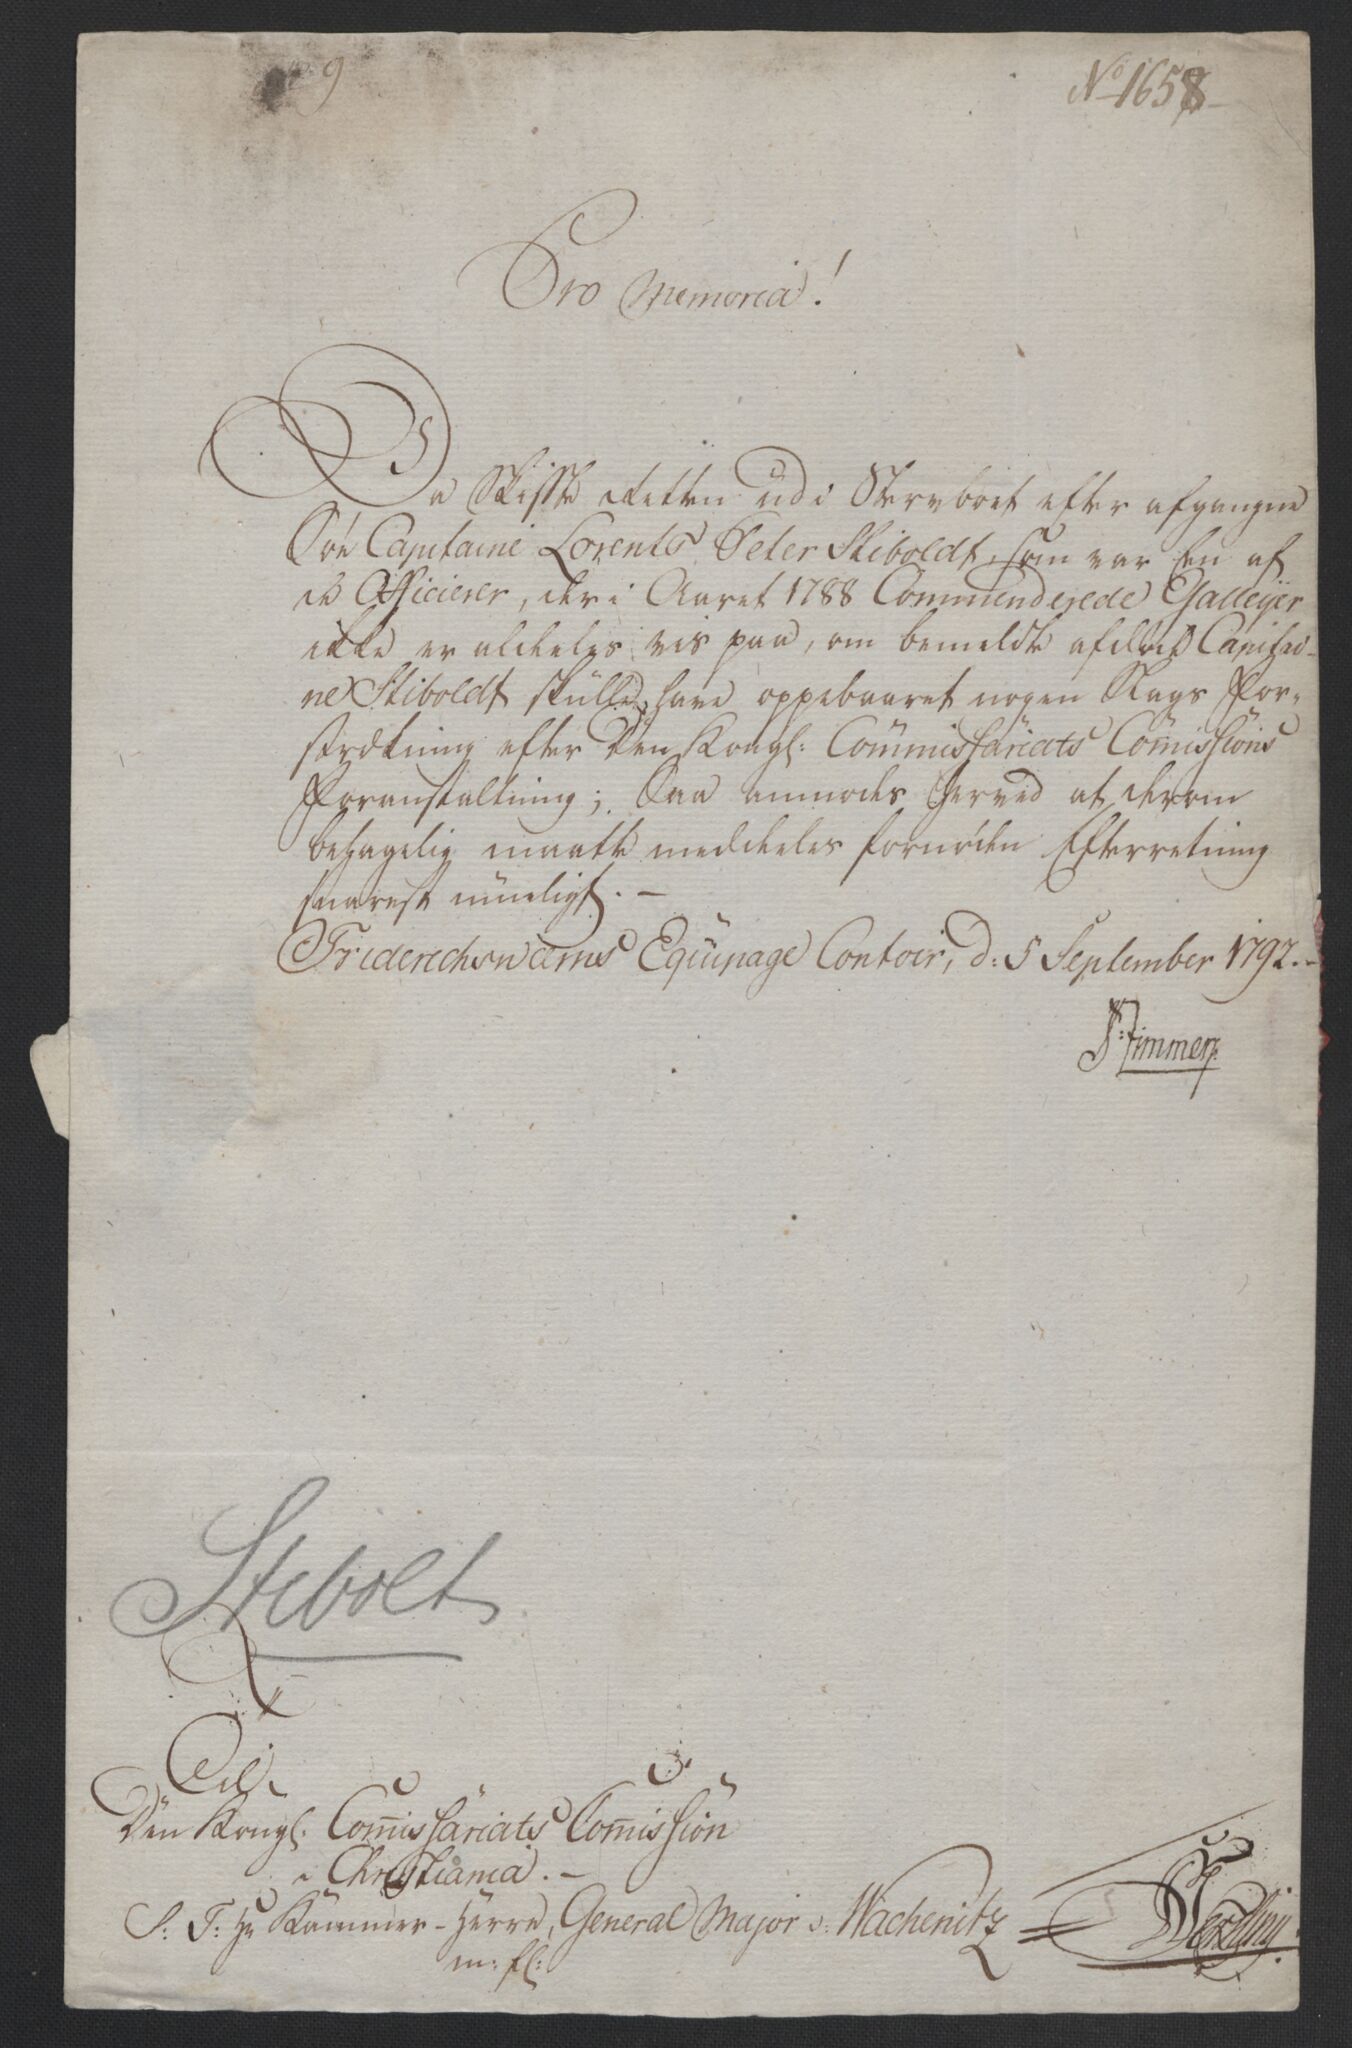 9
No 1658
Pro Memoria!
Da Skifte Retten udi Stervboet efter afgangne
Søe Capitaine Lorents Peter Stiboldt, som var Een af
de Officierer, der i Aaret 1788 Commenderede Galleyer
ikke er aldeles vis paa, om bemeldte afdøde Capitai-
ne Stiboldt skulle have oppebaaret nogen Slags For-
strækning efter Den Kongl: Commissariats Commissions
Foranstaltning; Saa anmodes herved at derom
behagelig maatte meddeeles fornøden Efterretning
snarest mueligst. -
Friderichswærns Equipage Contoir, d: 5 September 1792. -
P: Zimmer
Stibolt
Til
Den Kongl. Commissariats Commission
i Christiania. -
S: T: Hr Kammer-Herre, General Major v: Wackenitz
m: fl: